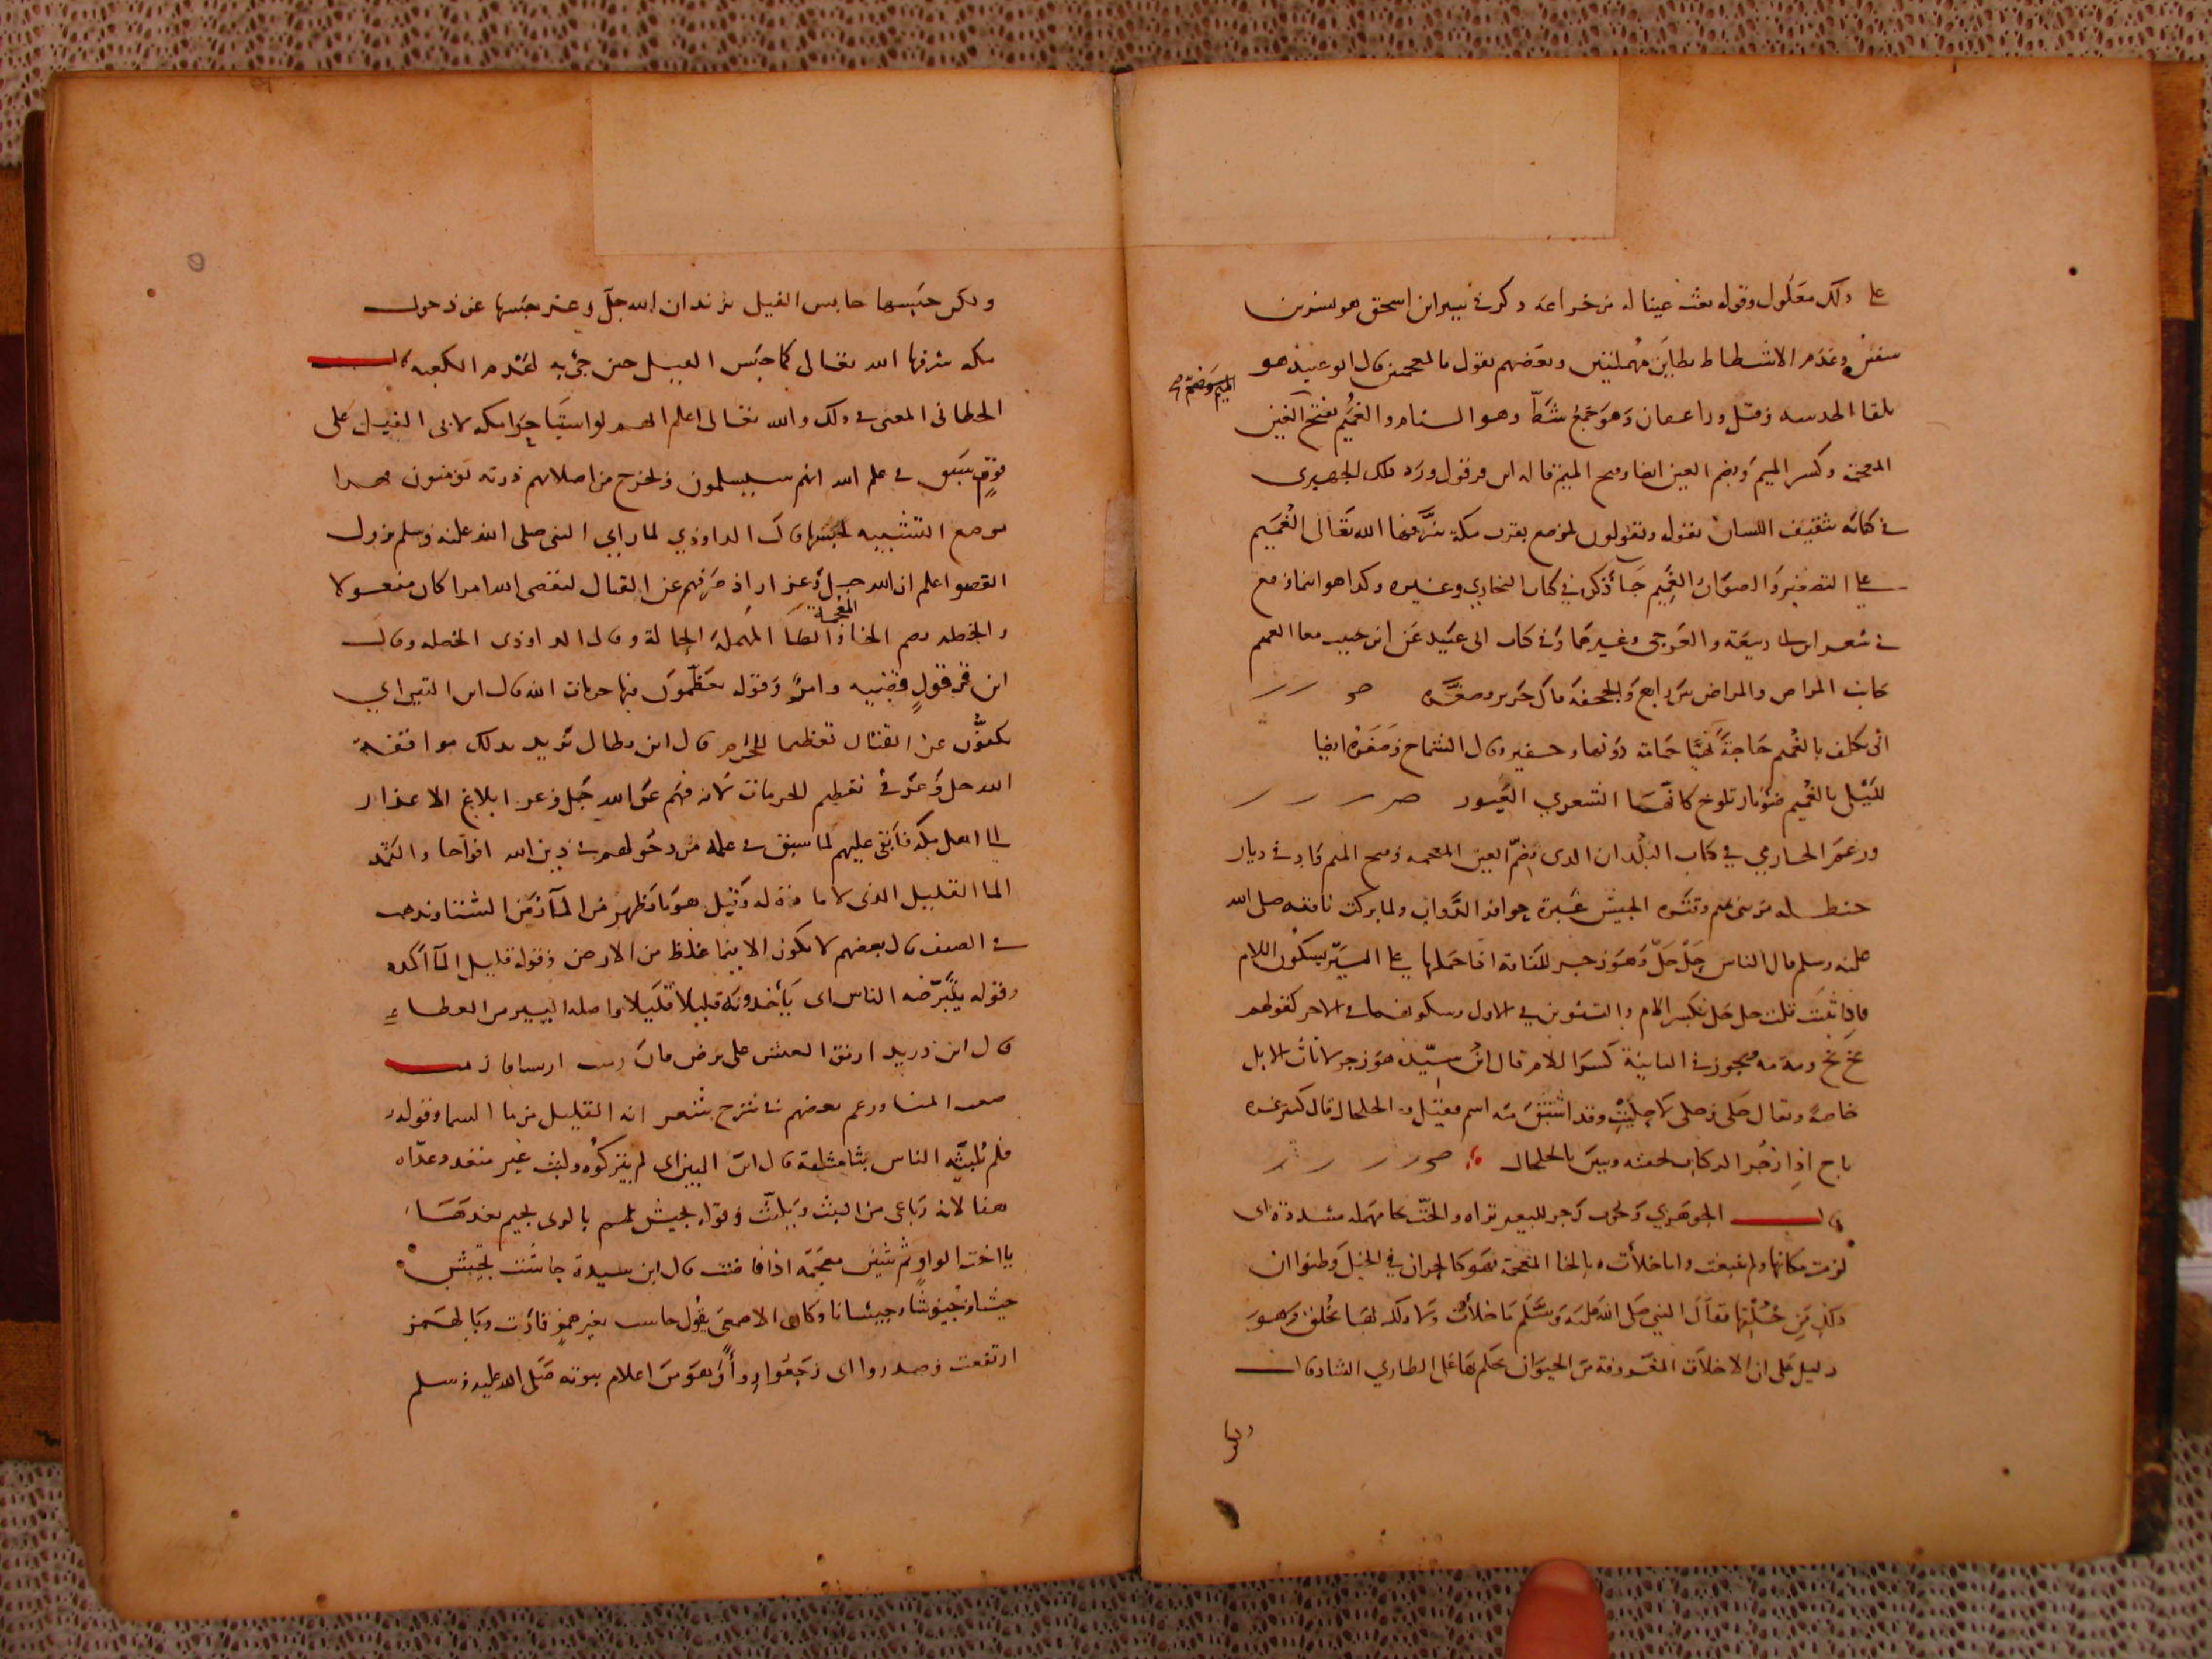 على ذلك معلول وقوله بعث عينا له من خزاعة ذكر في سير ابن اسحق هو بسر بن
سفين وغدير الاشطاط بطاين مهملتين وبعضهم يقول بالمعجمتين قال ابو عبيد هو
تلقا الحديبية وراعسفان وهو جمع شط وهو السنام والغميم بفتح الغين
المعجمة وكسر الميم وبضم الغين ايضا وفتح الميم قاله ابن قرقول ورد ذلك الحميري
في كتابه تثقيف اللسان بقوله ويقولون لموضع بقرب مكة شرفها الله تعالى الغميم
على التصغير والصواب الغميم جا ذكره في كتاب البخاري وغيره وكذا هو
في شعر ابن ابي ربيعة والعرجي وغيرهما وفي كتاب ابي عبيد عن ابن حبيب الغميم
جانب المراض والمراض بين رابغ والجحفة قال جرير وصغره
اتى بكلف بالغميم حاجة حمامة دونها وحفير وقال الشماخ وصغره ايضا
لليلى بالغميم ضو نار تلوح كانها الشعري العبور
وزعم الحازمي في كتاب البلدان الذي بضم الغين المعجمة وفتح الميم واد في ديار
حنظلة من بني تميم وقترة الجيش غبرة حوافر الدواب ولما بركت ناقته صلى الله
عليه وسلم قال الناس حل حل وهو زجر للناقة اذا حملها على السير بسكون اللام
فاذا ثنيت قلت حل حل بكسر اللام والتنوين في الاول وسكونها في الاخر كقولهم
بخ بخ وصه مه ويجوز في الثانية كسر اللام قال ابن سيده هو زجر لاناث الابل
خاصة ويقال حلى وحلى لا حليت وقد اشتق منه اسم فقيل الحلحال قال كثير عزه
ناج اذا زجر الركاب خلفه وبين بالحلحال
قال الجوهري وحوب زجر للبعير
لزمت مكانها ولم تنبعث واما خلأت بالخا المعجمة فهو كالحران في الخيل وظنوا ان
ذلك من خلقها فقال النبي صلى الله عليه وسلم ما خلأت وما ذلك لها بخلق وهو
دليل على ان الاخلاق المعروفة من الحيوان يحكم بها على الطاري الشاذ قال
الميم
ولكن حبسها حابس الفيل يريد ان الله جل وعز حبسها عن دخول
مكه شرفها الله تعالى كما حبس الفيل حين جي به لهدم الكعبه قال
الخطابي المعنى في ذلك والله تعالى اعلم انهم لو استباحوا مكه لاتى الفيل على
قوم سبق في علم الله انهم سيسلمون ويخرج من اصلابهم ذرية يؤمنون فهذا
موضع التشبيه لحبسها قال الداوذي لما راي النبي صلى الله عليه وسلم بروك
القصوا علم ان الله جل وعز اراذ صرفهم عن القتال ليقضي الله امرا كان مفعولا
والخطة بضم الخا والطا المهملة الحالة وقال الداوذي الخصله وقال
المعجمة
ابن قرقول قضيه وامر وقوله يعظمون فيها حرمات الله قال ابن التين اي
يكفون عن القتال تعظيما للحرم قال ابن بطال يريد بذلك موافقة
الله جل وعز في تعظيم الحرمات لانه فهم عن الله جل وعز ابلاغ الاعذار
الى اهل مكة فابقى عليهم لما سبق في علمه من دخولهم في دين الله افواجا والثمد
الما القليل الذي لا مادة له وقيل هو ما يظهر من الما زمن الشتا ويذهب
في الصيف قال بعضهم لا يكون الا فيما غلظ من الارض وقوله قليل الما اكده
وقوله يتبرضه الناس اى يأخذونه قليلا قليلا واصله اليسير من العطاء
قال ابن دريد ارمق العيش على برض فان رمت ارتشافا رمت
صعب المنتسا وزعم بعضهم في شرح شعر انه القليل من ما السما وقوله
فلم يلبثه الناس بثا مثلثة قال ابن التين اي لم يتركوه ولبث غير متعد وعداه
هنا لانه رباعي من البث ويلبث وقوله يجيش لهم بالري بجيم بعدها
يا اخت الواو ثم شين معجمة اذا فاضت قال ابن سيدة جاشت تجيش
جيشا وجيوشا وجيشانا وكان الاصمعي يقول جاشت بغير همز فارت وبالهمز
ارتفعت وصدروا اى رجعوا رواً وهو من اعلام نبوته صلى الله عليه وسلم